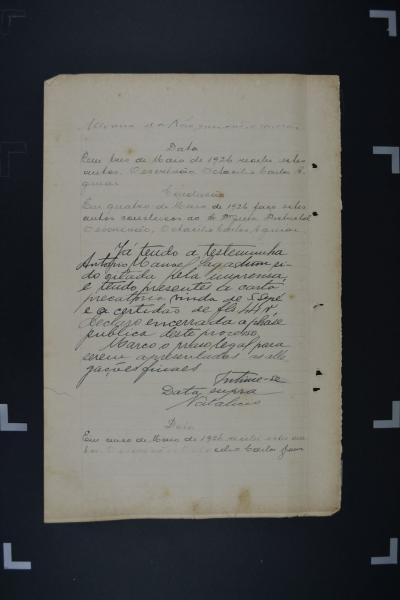 Data
Em tres de Maio de 1926 recebi estes
autos. O escrivão, Octacilio Carlos A-
guiar
Conclusão
Em quatro de Maio de 1926 faço estes
autos conclusos ao Dr
O escrivão, Octacilio Carlos Aguiar
Já tendo a testemunha
Antonio Manoel
do citada pela imprensa,
e tendo presentes a carta
precatoria vinda de
e a certidão de fls
declaro encerrada a phase
publica deste processo.
Marco o praso legal para
serem apresentadas as alle-
gações finaes
Intime-se
Data supra
Natalicio
Data
Em cinco de Maio de 1926 recebi estes au-
Carlos